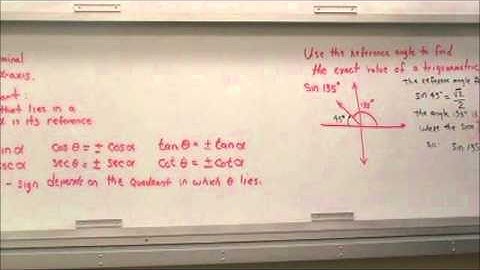 minal
-axis.
ant :
that lies in a
α is its reference
in α cos θ = ± cos α tan θ = ± tan α
csc α sec θ = ± sec α cot θ = ± cot α
- sign depends on the Quadrant in which θ lies.
Use the reference angle to find
the exact value of a trigonometric
sin 135°
45°
135°
the reference angle fo
sin 45° = √2/2
the angle 135° is
where the sin
so: sin 135